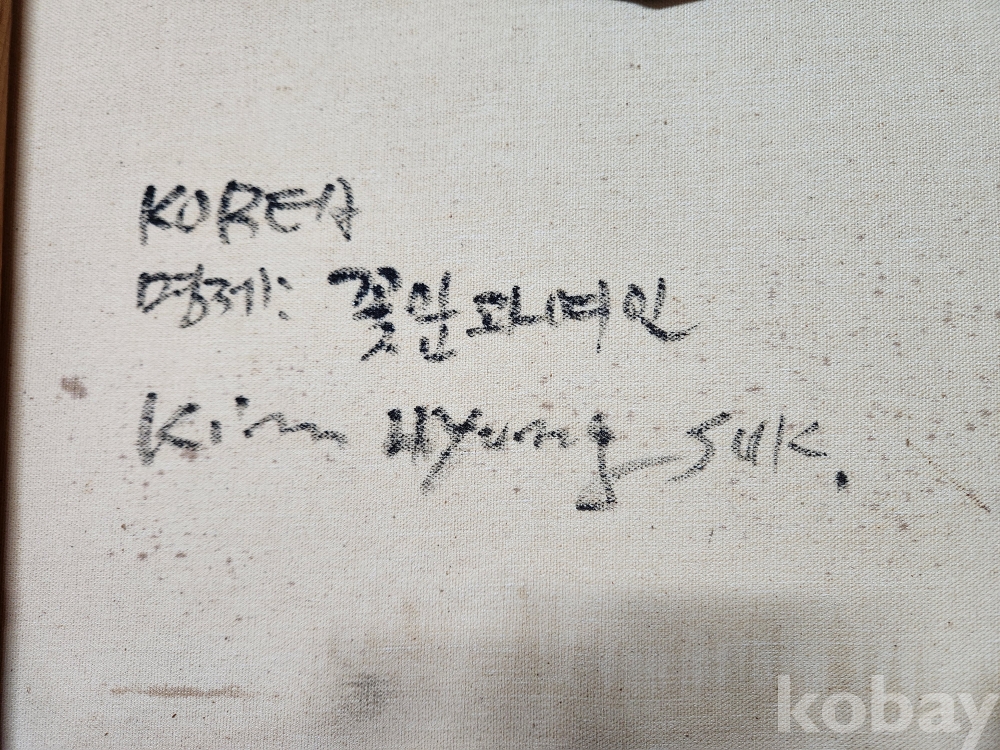 KOREA
명제: 꽃안고니여인
Kim Hyung Suk.
kobay